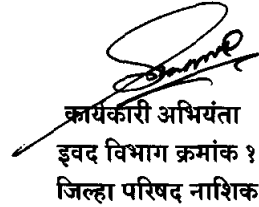 कार्यकारी अभियंता
इवद विभाग क्रमांक १
जिल्हा परिषद नाशिक